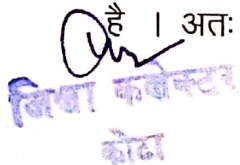 है । अतः
जिला कलेक्टर
कोटा